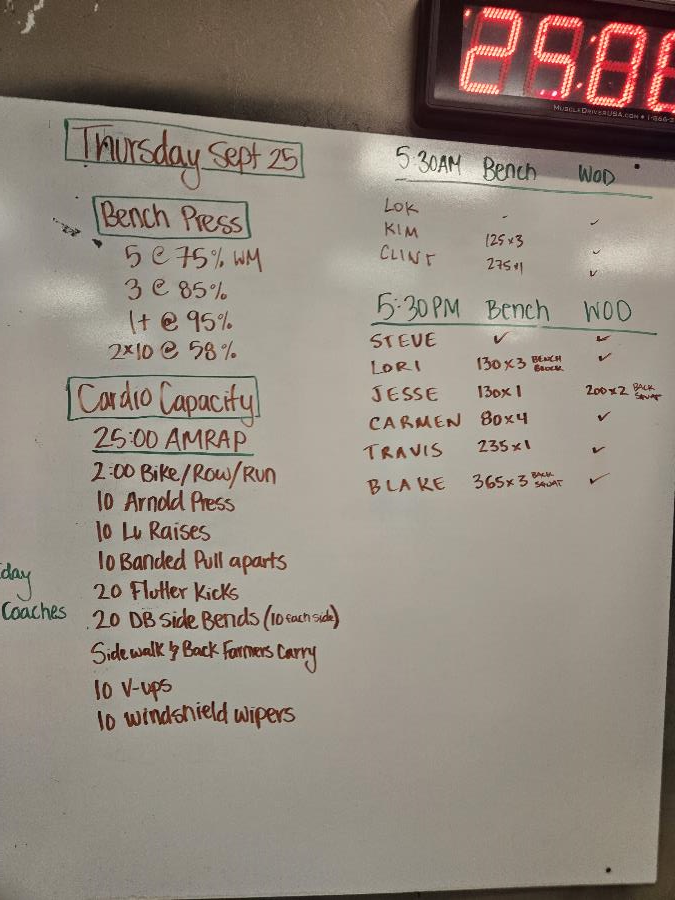 25:00
MUSCLEDRIVERUSA.COM • 1-866-2
Thursday Sept 25
Bench Press
5 @ 75% WM
3 @ 85%
1+ @ 95%
2x10 @ 58%
Cardio Capacity
25:00 AMRAP
2:00 Bike/Row/Run
10 Arnold Press
10 Lu Raises
10 Banded Pull aparts
20 Flutter Kicks
20 DB side Bends (10 each side)
Sidewalk & Back Farmers Carry
10 V-ups
10 windshield wipers
day
Coaches
5:30AM Bench WOD
LOK - ✓
KIM 125x3 ✓
CLINT 275x1 ✓
5:30PM Bench WOD
STEVE ✓ ✓
LORI 130x3 BENCH BLOCK ✓
JESSE 130x1 200x2 BACK SQUAT
CARMEN 80x4 ✓
TRAVIS 235x1 ✓
BLAKE 365x3 BACK SQUAT ✓